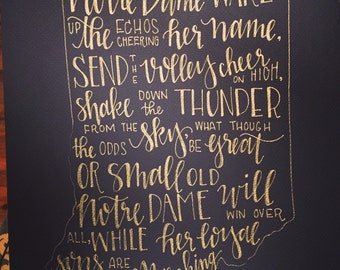 Notre Dame WAKE
UP the ECHOS CHEERING her name,
SEND THE volley cheer ON HIGH,
shake DOWN the THUNDER
FROM THE sky, WHAT THOUGH
the ODDS BE great
OR small OLD
Notre DAME will
WIN OVER
ALL, WHILE her loyal
sons ARE marching